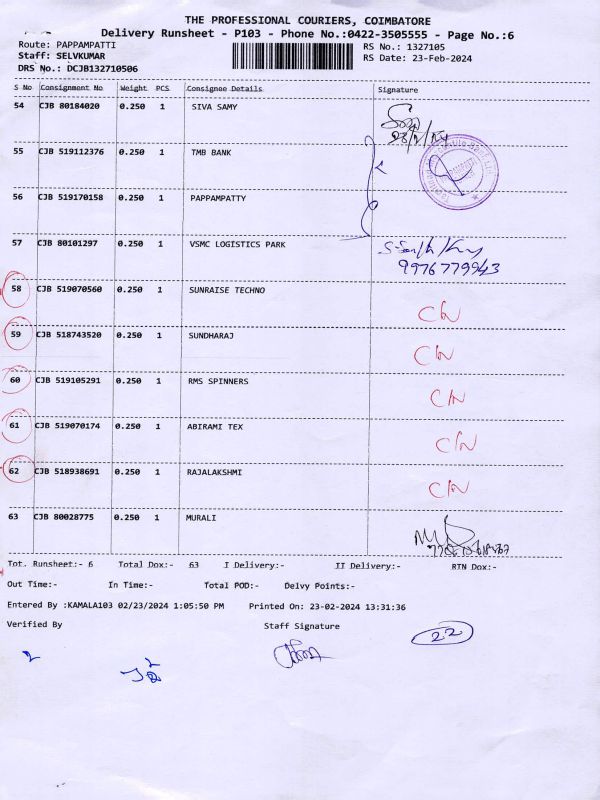 THE PROFESSIONAL COURIERS, COIMBATORE
Delivery Runsheet - P103 - Phone No.:0422-3505555 - Page No.:6
Route: PAPPAMPATTI RS No.: 1327105
Staff: SELVKUMAR RS Date: 23-Feb-2024
DRS No.: DCJB132710506
S No Consignment No Weight PCS Consignee Details Signature
54 CJB 80184020 0.250 1 SIVA SAMY
55 CJB 519112376 0.250 1 TMB BANK
56 CJB 519170158 0.250 1 PAPPAMPATTY
57 CJB 80101297 0.250 1 VSMC LOGISTICS PARK
9976779943
58 CJB 519070560 0.250 1 SUNRAISE TECHNO C/N
59 CJB 518743520 0.250 1 SUNDHARAJ C/N
60 CJB 519105291 0.250 1 RMS SPINNERS C/N
61 CJB 519070174 0.250 1 ABIRAMI TEX C/N
62 CJB 518938691 0.250 1 RAJALAKSHMI C/N
63 CJB 80028775 0.250 1 MURALI
Tot. Runsheet:- 6 Total Dox:- 63 I Delivery:- II Delivery:- RTN Dox:-
Out Time:- In Time:- Total POD:- Delvy Points:-
Entered By :KAMALA103 02/23/2024 1:05:50 PM Printed On: 23-02-2024 13:31:36
Verified By Staff Signature
22